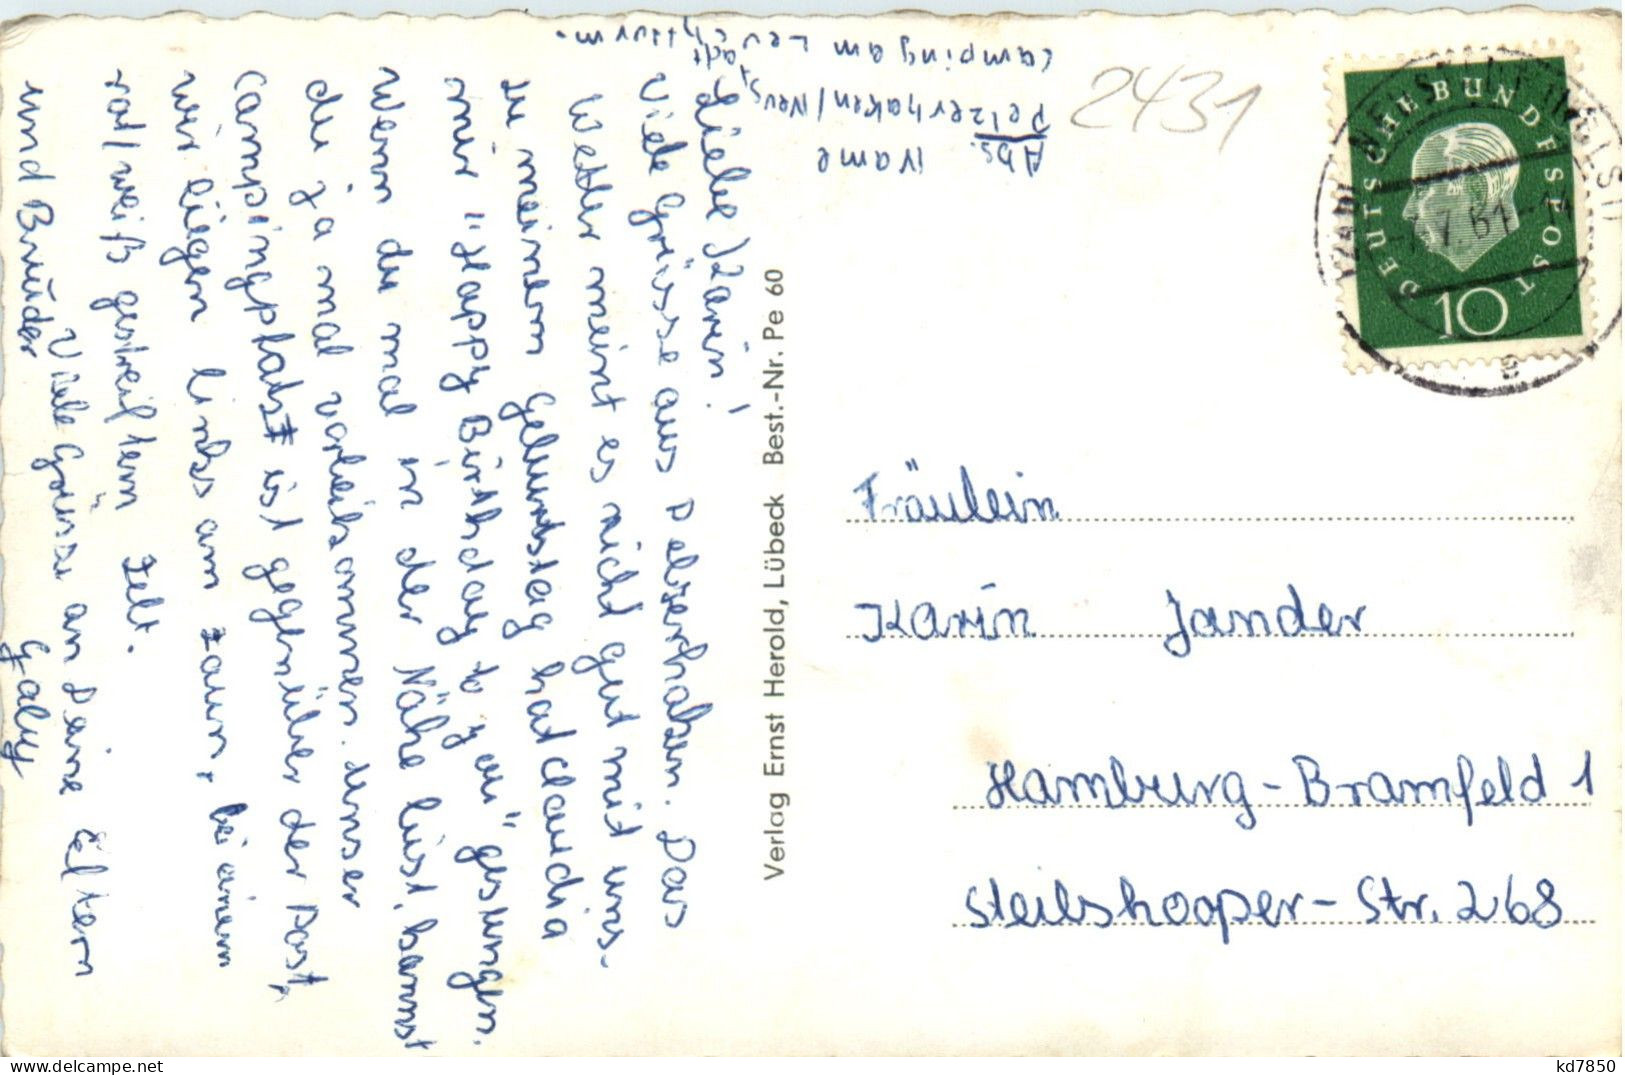 Abs. Name
Pelzerhaken/Neustadt
Camping am Leuchtturm.
Liebe Karin!
Viele Grüsse aus Pelzerhaken. Das
Wetter meint es nicht gut mit uns.
Zu meinem Geburtstag hat Claudia
mir "Happy Birthday to you" gesungen.
Wenn du mal in der Nähe bist, kannst
du ja mal vorbeikommen. Unser
Campingplatz ist gegenüber der Post,
wir liegen links am Zaun, bei einem
rot/weiß gestreiftem Zelt.
Viele Grüsse an Deine Eltern
und Brüder
Gaby
Verlag Ernst Herold, Lübeck Best.-Nr. Pe 60
2431
DEUTSCHE BUNDESPOST
10
7.7.61
Fräulein
Karin Jander
Hamburg-Bramfeld 1
Steilshooper-Str. 268
kd7850